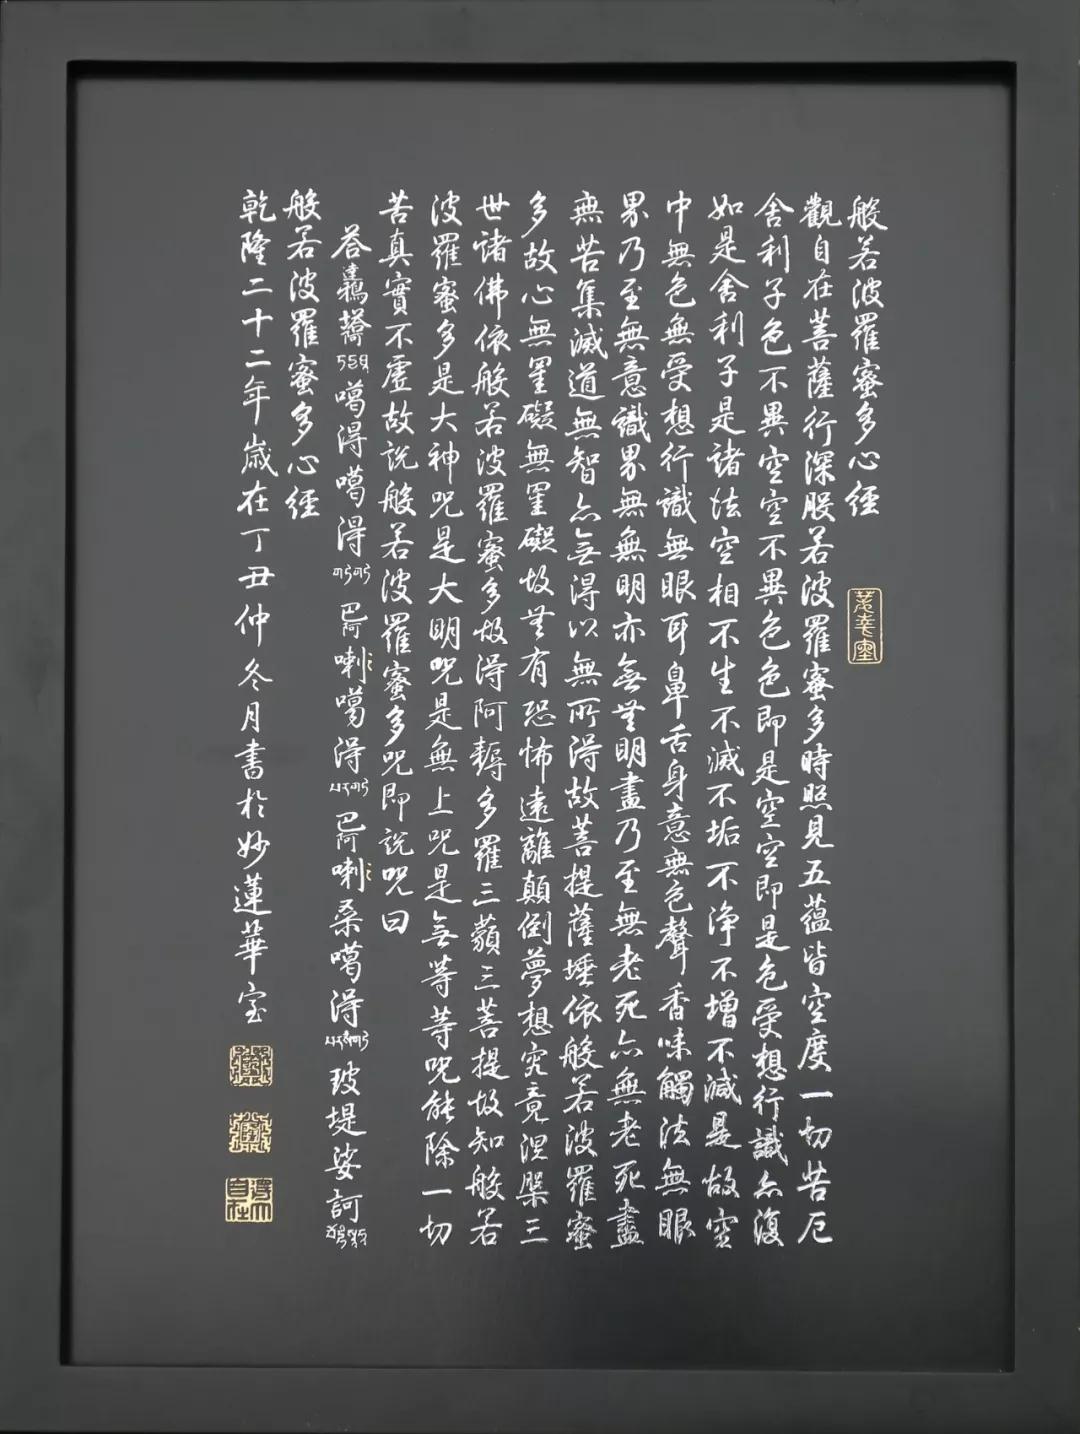 般若波羅蜜多心經
觀自在菩薩行深般若波羅蜜多時照見五蘊皆空度一切苦厄
舍利子色不異空空不異色色即是空空即是色受想行識亦復
如是舍利子是諸法空相不生不滅不垢不淨不增不減是故空
中無色無受想行識無眼耳鼻舌身意無色聲香味觸法無眼
界乃至無意識界無無明亦無無明盡乃至無老死亦無老死盡
無苦集滅道無智亦無得以無所得故菩提薩埵依般若波羅蜜
多故心無罣礙無罣礙故無有恐怖遠離顛倒夢想究竟涅槃三
世諸佛依般若波羅蜜多故得阿耨多羅三藐三菩提故知般若
波羅蜜多是大神咒是大明咒是無上咒是無等等咒能除一切
苦真實不虛故說般若波羅蜜多咒即說咒曰
答 噶得噶得 巴阿喇噶得 巴阿喇桑噶得 玻堤娑訶
般若波羅蜜多心經
乾隆二十二年歲在丁丑仲冬月書於妙蓮華室
得大自在